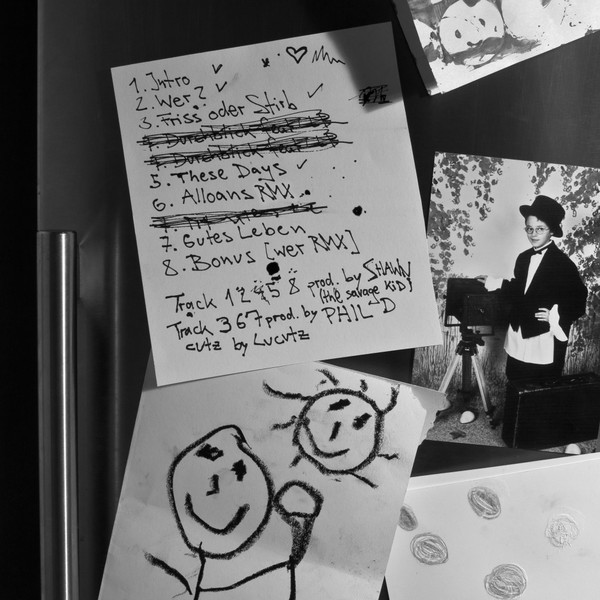 1. Intro
2. Wer?
3. Friss oder Stirb
4. Durchblick feat.
4. Durchblick feat.
5. These Days
6. Alloans RMX
7. Gutes Leben
8. Bonus [wer RMX]
Track 1 2 4 5 8 prod. by SHAWN
(the savage kid)
Track 3 6 7 prod. by PHIL D
cutz by Lucutz